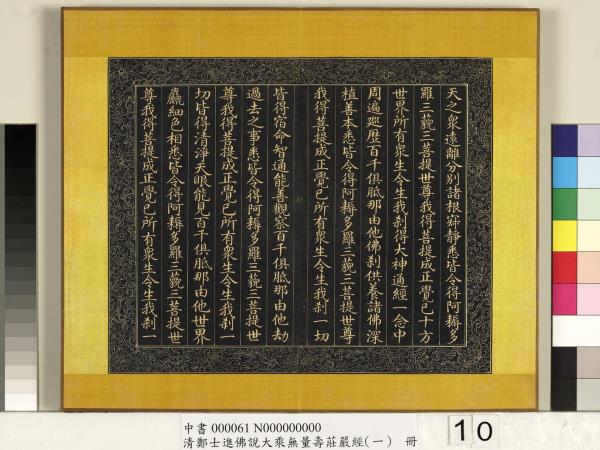 天之眾遠離分別諸根寂靜悉皆令得阿耨多
羅三藐三菩提世尊我得菩提成正覺已十方
世界所有眾生令生我剎得大神通經一念中
周遍巡歷百千俱胝那由他佛剎供養諸佛深
植善本悉皆令得阿耨多羅三藐三菩提世尊
我得菩提成正覺已所有眾生令生我剎一切
皆得宿命智通能善觀察百千俱胝那由他劫
過去之事悉皆令得阿耨多羅三藐三菩提世
尊我得菩提成正覺已所有眾生令生我剎一
切皆得清淨天眼能見百千俱胝那由他世界
麤細色相悉皆令得阿耨多羅三藐三菩提世
尊我得菩提成正覺已所有眾生令生我剎一
中書 000061 N000000000
清鄭士進佛說大乘無量壽莊嚴經(一) 冊
10